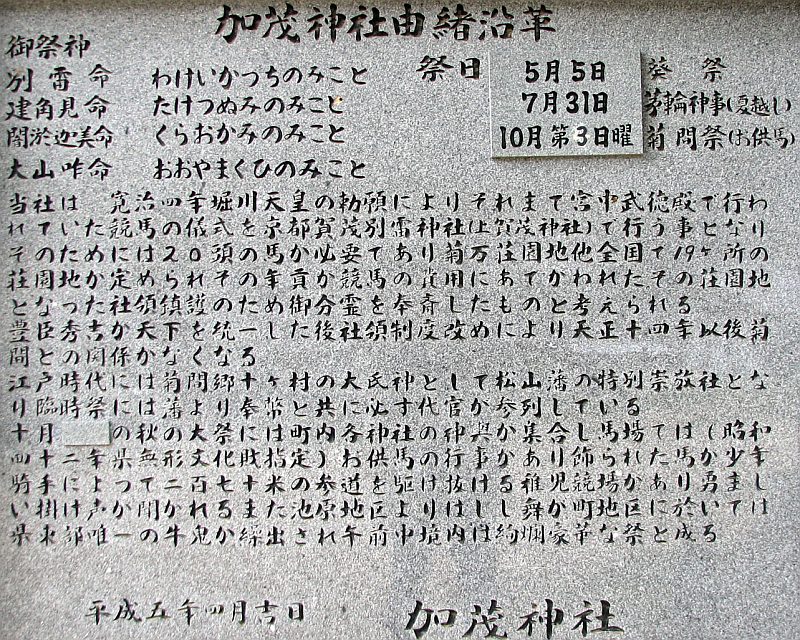 加茂神社由緒沿革
御祭神
別雷命 わけいかつちのみこと 祭日 5月5日 葵祭
建角見命 たけつぬみのみこと 7月31日 茅輪神事(夏越し)
闇於迦美命 くらおかみのみこと 10月第3日曜 菊間祭(お供馬)
大山咋命 おおやまくひのみこと
当社は 寛治四年堀川天皇の勅願によりそれまて宮中武徳殿で行わ
れていた競馬の儀式を京都賀茂別雷神社(上賀茂神社)て行う事となり
そのためには20頭の馬か必要てあり菊万荘園地他全国て19ヶ所の
荘園地か定められその年貢か競馬の費用にあてかわれたその荘園地
となった社領鎮護のため御分霊を奉斉したものと考えられる
豊臣秀吉か天下を統一した後社領制度改めにより天正十四年以後菊
間との関係かなくなる
江戸時代には菊間郷十ヶ村の大氏神として松山藩の特別崇敬社とな
り臨時祭には藩より奉幣と共に必す代官か参列している
十月 の秋の大祭には町内各神社の神輿か集合し馬場ては(昭和
四十二年県無形文化財指定)お供馬の行事かあり飾られた馬か少年
騎手によって二百七十米の参道を駆け抜ける稚児競場かあり勇まし
い掛け声か聞かれるまた池原地区よりはしし舞か町地区に於いては
県東部唯一の牛鬼か繰出され午前中境内は絢爛豪華な祭と成る
平成五年四月吉日 加茂神社